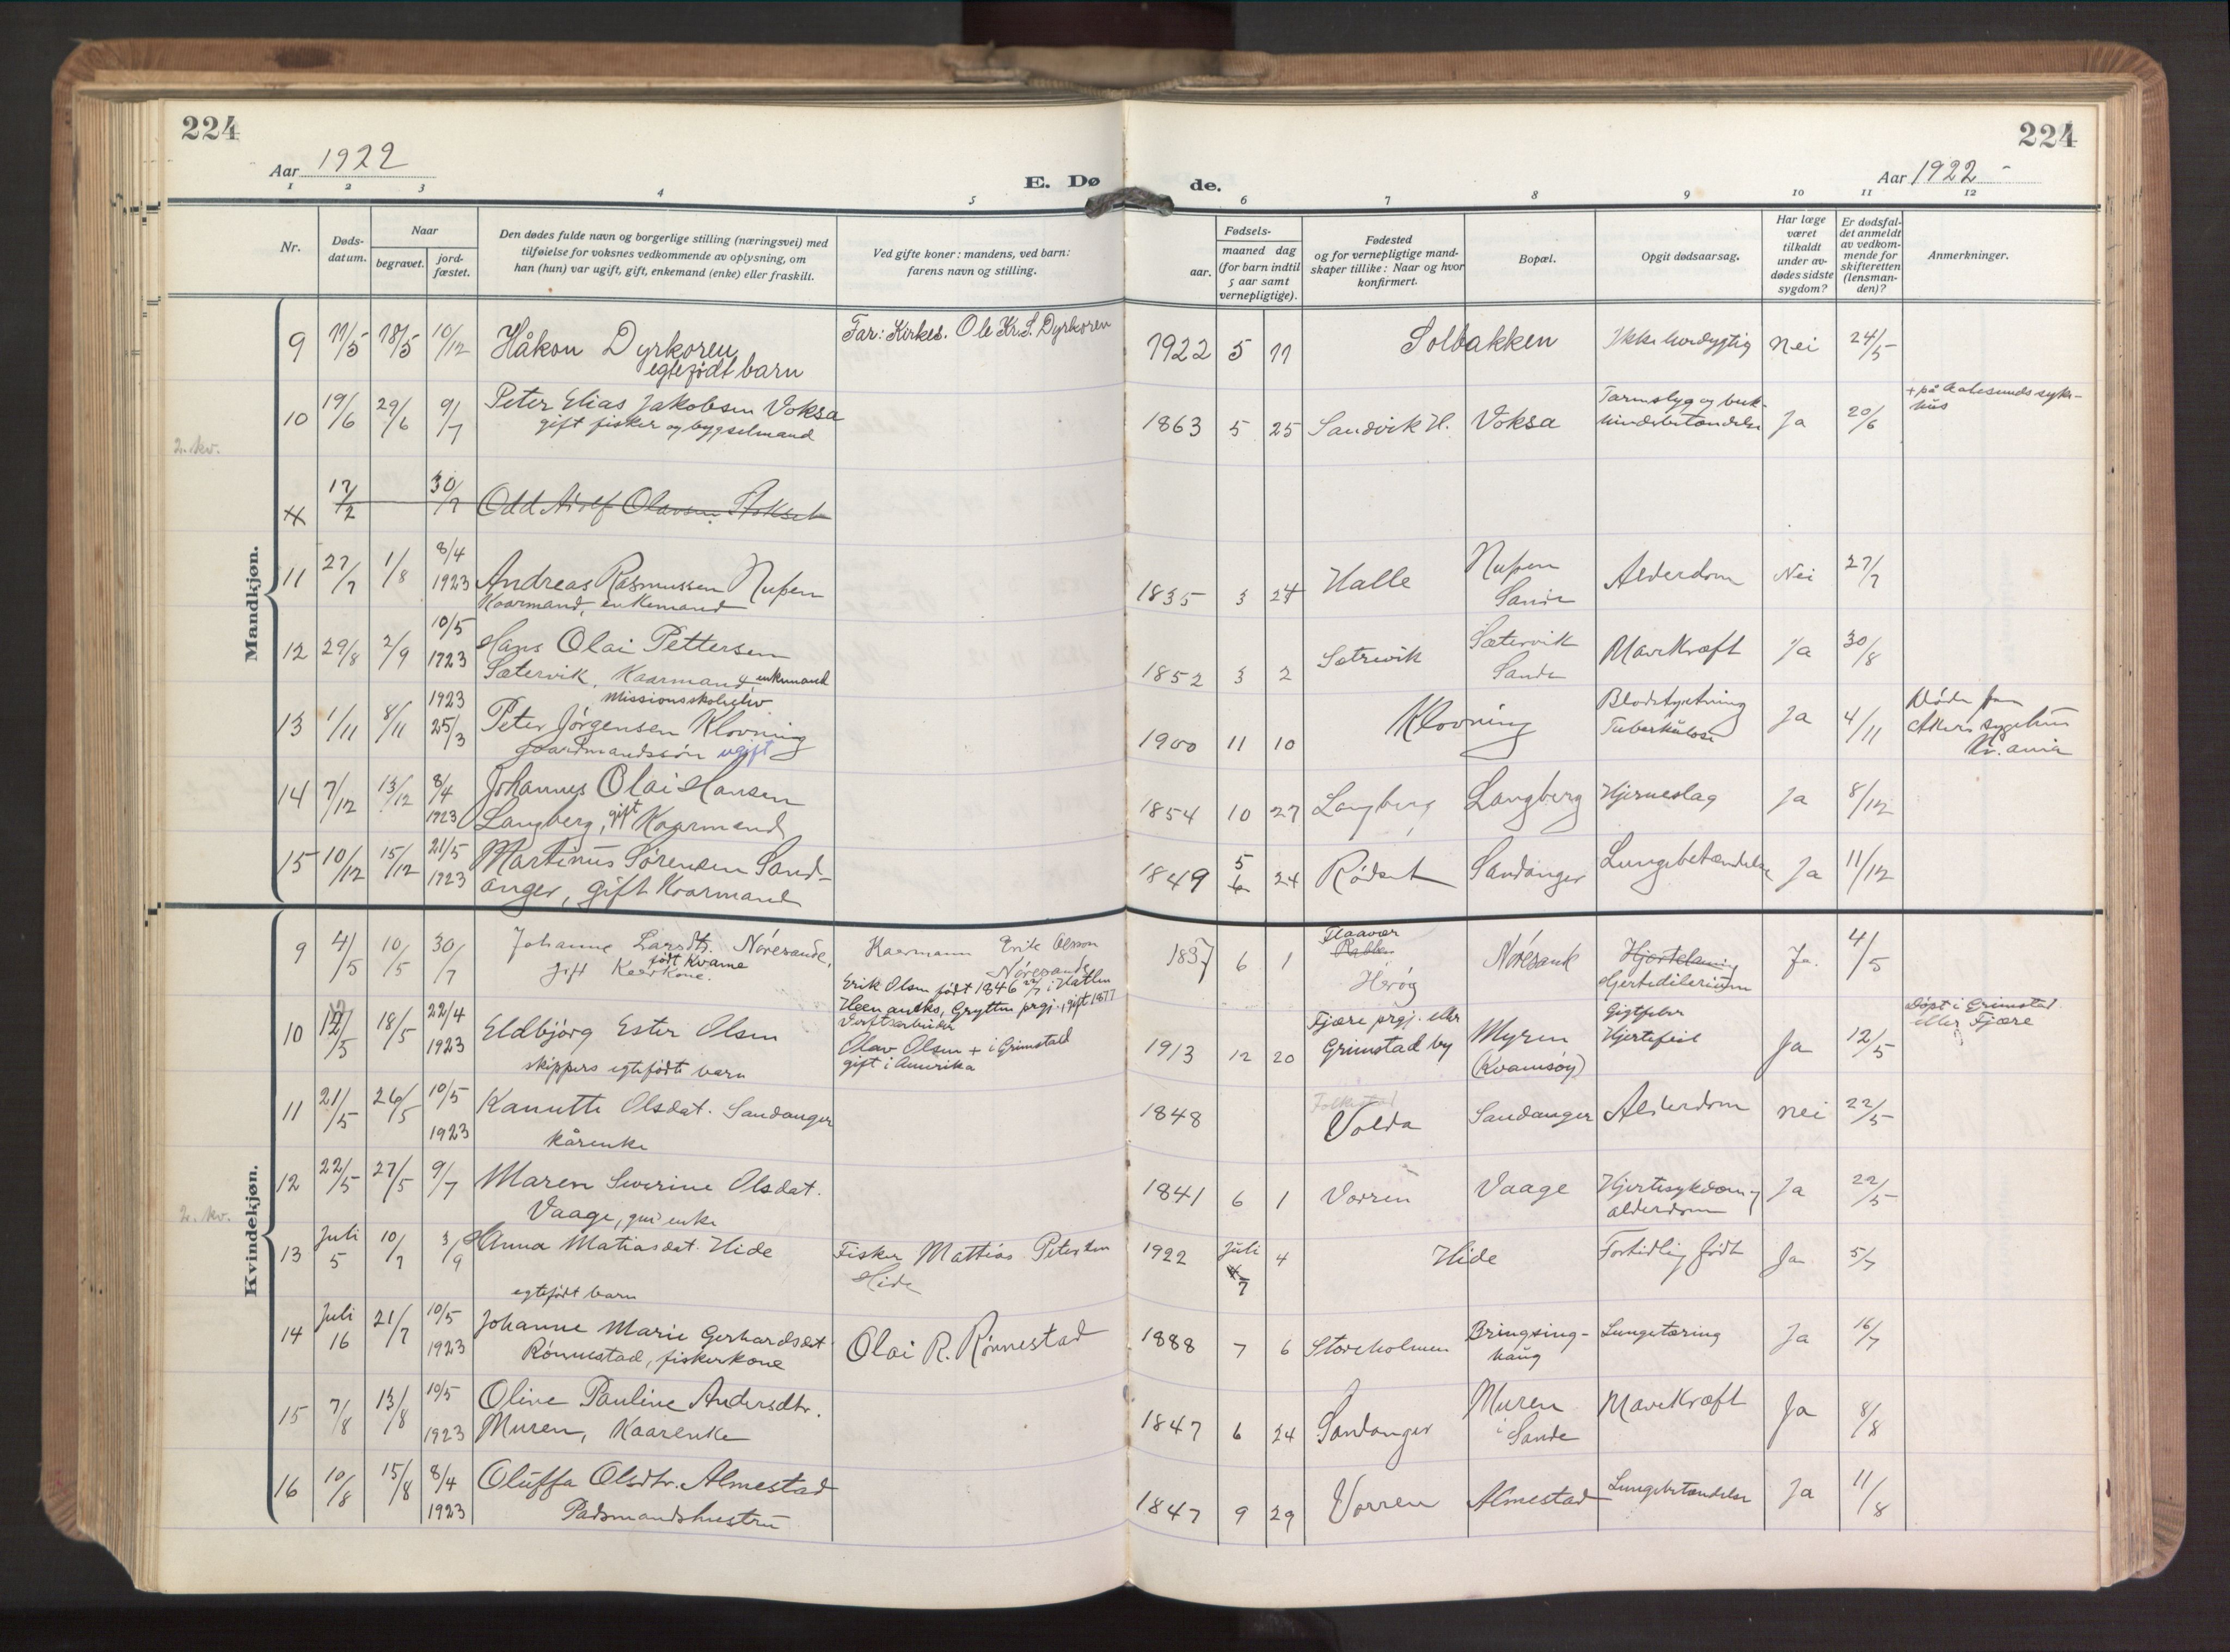 224
224
Aar 1922
Aar 1922
E. Dø
de.
1 2 3 4 5
6 7 8 9 10 11 12
Nr.
Døds-
datum.
Naar
begravet.
jord-
fæstet.
Den dødes fulde navn og borgerlige stilling (næringsvei) med
tilføielse for voksnes vedkommende av oplysning, om
han (hun) var ugift, gift, enkemand (enke) eller fraskilt.
Ved gifte koner: mandens, ved barn:
farens navn og stilling.
Fødsels-
aar.
maaned dag
(for barn indtil
5 aar samt
vernepligtige).
Fødested
og for vernepligtige mand-
skaper tillike: Naar og hvor
konfirmert.
Bopæl.
Opgit dødsaarsag.
Har læge
været
tilkaldt
under av-
dødes sidste
sygdom?
Er dødsfal-
det anmeldt
av vedkom-
mende for
skifteretten
(lensman-
den)?
Anmerkninger.
Mandkjøn.
9 11/5 18/5 10/12 Håkon Dyrkoren
egtefødt barn
Far: Kirkes. Ole Kr. S. Dyrkoren
1922 5 11 Solbakken Ikke levedygtig Nei 24/5
10 19/6 29/6 9/7 Peter Elias Jakobsen Voksa
gift fisker og bygselmand
1863 5 25 Sandvik H. Voksa Tarmslyg og buk-
hindebetændelse Ja 20/6
+ på Aalesunds syke-
hus
2. kv.
17/2 30/7 Odd Adolf Olavsen Stokset
11 27/7 1/8 8/4
1923 Andreas Rasmussen Nupen
Kaarmand, enkemand
1835 3 24 Halle Nupen
Sande Alderdom Nei 27/7
12 29/8 2/9 10/5
1923 Hans Olai Pettersen
Sætervik, Kaarmand enkemand
1852 3 2 Sætrevik Sætervik
Sande Mavekræft Ja 30/8
13 1/11 8/11 1923
25/3 Missionsskoleelev
Peter Jörgensen Klovning
gaardmandssön ugift
1900 11 10 Klovning Blodstyrtning
Tuberkulose Ja 4/11
Döde paa
Akers sygehus
Kr.ania
14 7/12 13/12 8/4
1923 Johannes Olai Hansen
Langberg, gift Kaarmand
1854 10 27 Langberg Langberg Hjerneslag Ja 8/12
15 10/12 15/12 21/5
1923 Martinus Sørensen Sand-
anger, gift Kaarmand
1849 5
6 24 Rødset Sandanger Lungebetændelse Ja 11/12
Kvindekjøn.
9 4/5 10/5 30/7 Johanne Larsdtr. Nöresande,
født Kvame
gift Kaarkone.
Kaarmann Erik Olsson
Nöresande
Erik Olsen født 1846 22/7 i Hatlen
Heen anneks, Grytten prgj., gift 1877
1837 6 1 Flaavær
Rabben
Herøy Nöresand Hjertelamning
Hjertedilerium Ja. 4/5
10 12/5 18/5 22/4
1923 Eldbjörg Ester Olsen
skippers egtefödte barn
Verftsarbeider
Olav Olsen + i Grimstad
gift i Amerika
1913 12 20 Fjære prgj. eller
Grimstad by Myren
(Kvamsöy) Gigtfeber
Hjertefeil Ja 12/5
Døpt i Grimstad
eller Fjære
11 21/5 26/5 10/5
1923 Kanutte Olsdat. Sandanger
kårenke
1848 Folkestad
Volda Sandanger Alderdom nei 22/5
12 22/5 27/5 9/7 Maren Severine Olsdat.
Vaage, grd enke
1841 6 1 Vorren Vaage Hjertesykdom og
alderdom Ja 22/5
2. kv.
13 Juli
5 10/7 3/9 Anna Matiasdat. Hide
egtefödt barn
Fisker Mattias Petersen
Hide
1922 Juli
7 4 Hide Fortidlig födt Ja 5/7
14 Juli
16 21/7 10/5
1923 Johanne Marie Gerhardsdat.
Rönnestad, fiskerkone
Olai R. Rönnestad
1888 7 6 Storeholmen Bringsing-
haug Lungetæring Ja 16/7
15 7/8 13/8 10/5
1923 Oline Pauline Andersdtr.
Muren, Kaarenke
1847 6 24 Sandanger Muren
i Sande Mavekræft Ja 8/8
16 10/8 15/8 8/4
1923 Oluffa Olsdtr. Almestad
Pladsmandshustru
1847 9 29 Vorren Almestad Lungebetændelse Ja 11/8